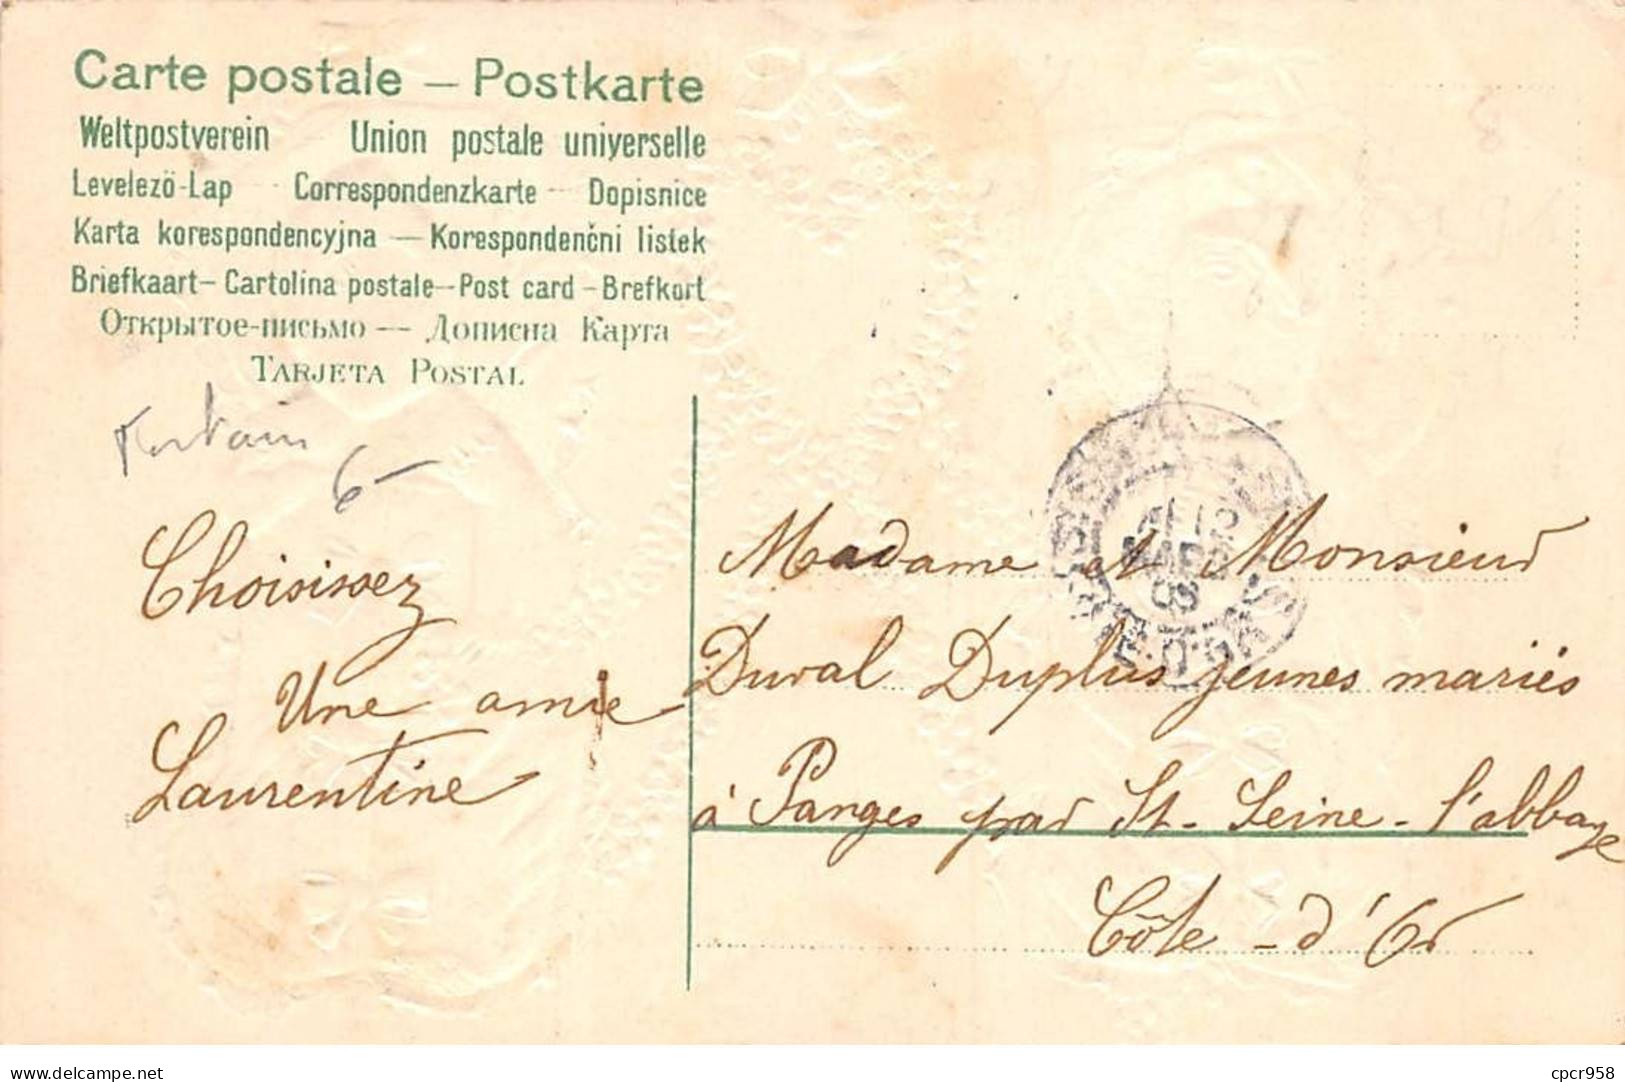 Carte postale — Postkarte
Weltpostverein Union postale universelle
Levelező-Lap — Correspondenzkarte — Dopisnice
Karta korespondencyjna — Korespondenčni listek
Briefkaart — Cartolina postale — Post card — Brefkort
Открытое-письмо — Дописна Карта
Tarjeta Postal
6-
Choisissez
Une amie
Laurentine
Madame et Monsieur
Duval Duplus jeunes mariés
à Panges par St-Seine-l'abbaye
Côte-d'Or
www.delcampe.net
cpcr958